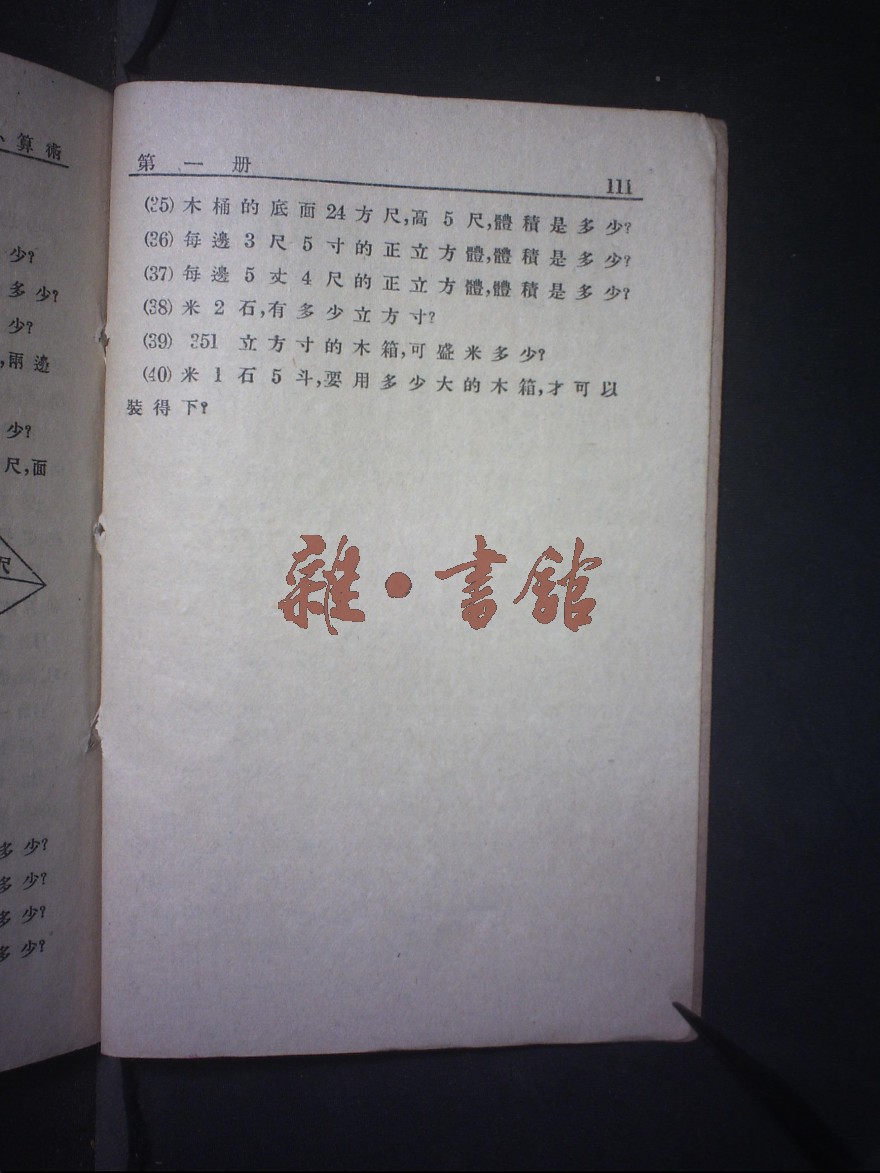 算術
少?
多少?
少?
,兩邊
少?
尺,面
尺
多少?
多少?
多少?
多少?
第一册
111
(35) 木桶的底面24方尺,高5尺,體積是多少?
(36) 每邊3尺5寸的正立方體,體積是多少?
(37) 每邊5丈4尺的正立方體,體積是多少?
(38) 米2石,有多少立方寸?
(39) 351立方寸的木箱,可盛米多少?
(40) 米1石5斗,要用多少大的木箱,才可以
裝得下?
雜·書館